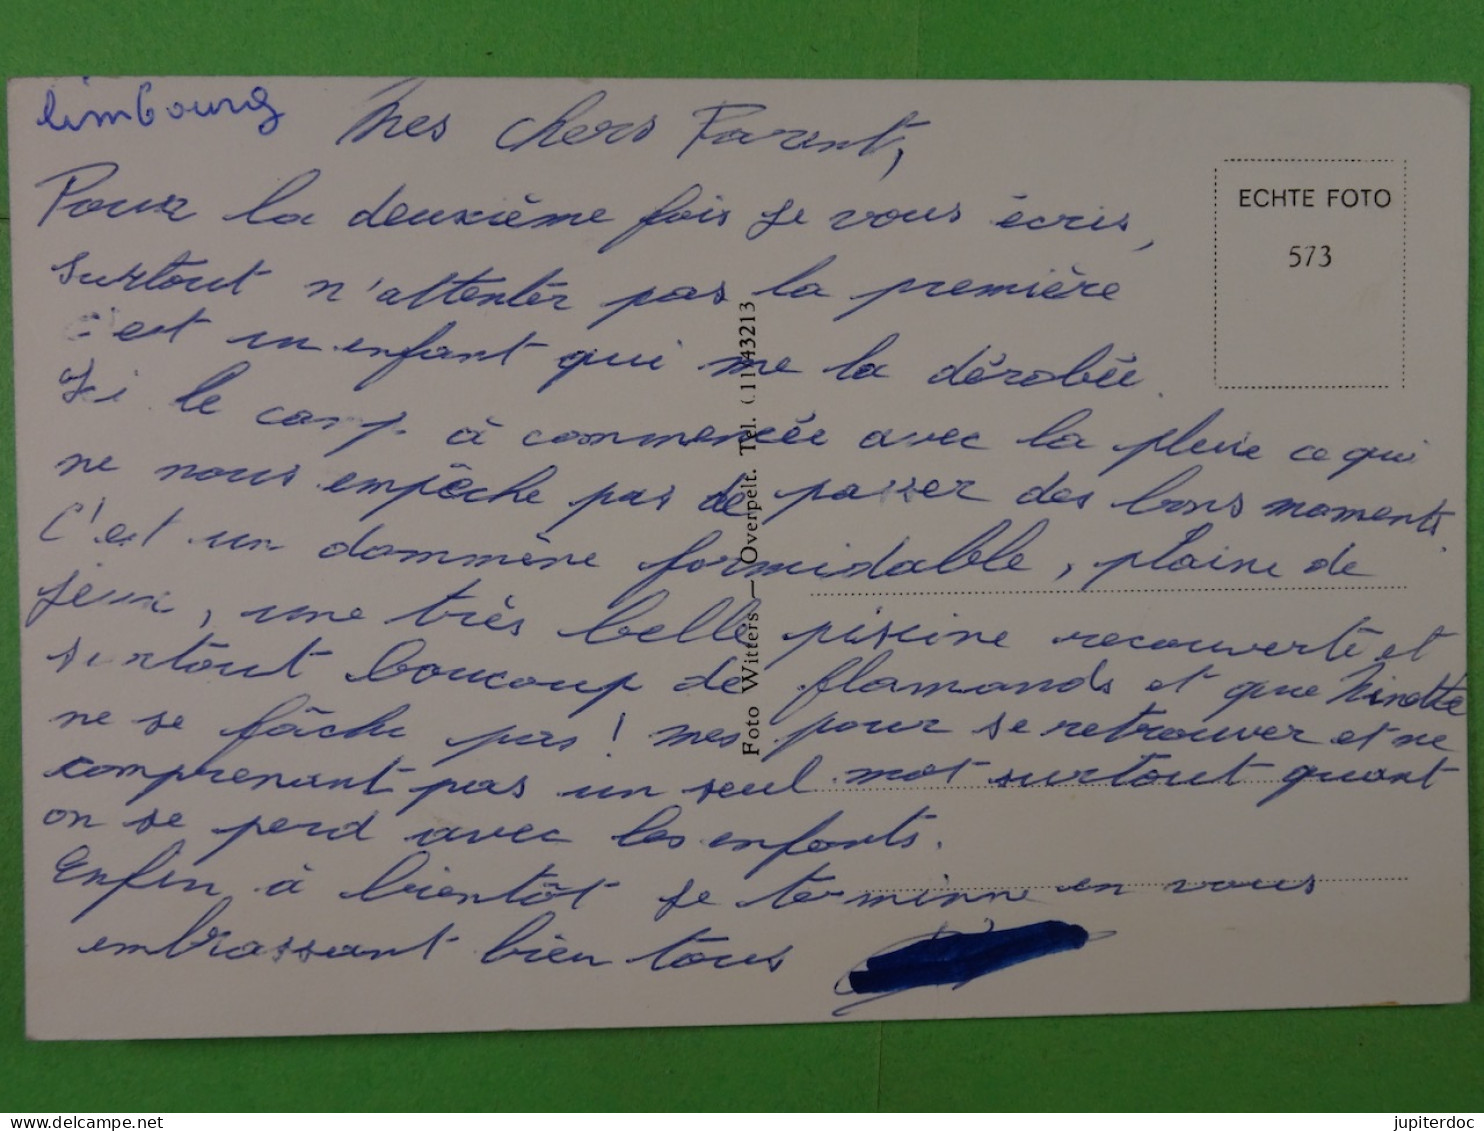 limbourg
Mes chers Parent,
Pour la deuxième fois je vous écris,
surtout n'attentér pas la première
c'est un enfant qui me la dérobée.
Ici le camp à commencée avec la pluie ce qui
ne nous empêche pas de passer des bons moments.
C'est un dommène formidable, plaine de
jeux, une très belle piscine recouverte et
surtout boucoup de flamands et que Ninotte
ne se fâche pas! mes pour se retrouver et ne
comprenant pas un seul mot surtout quant
on se perd avec les enfants.
Enfin à bientôt je terminne en vous
embrassant bien tous
ECHTE FOTO
573
Foto Witters — Overpelt. Tel. (11)43213
jupiterdoc